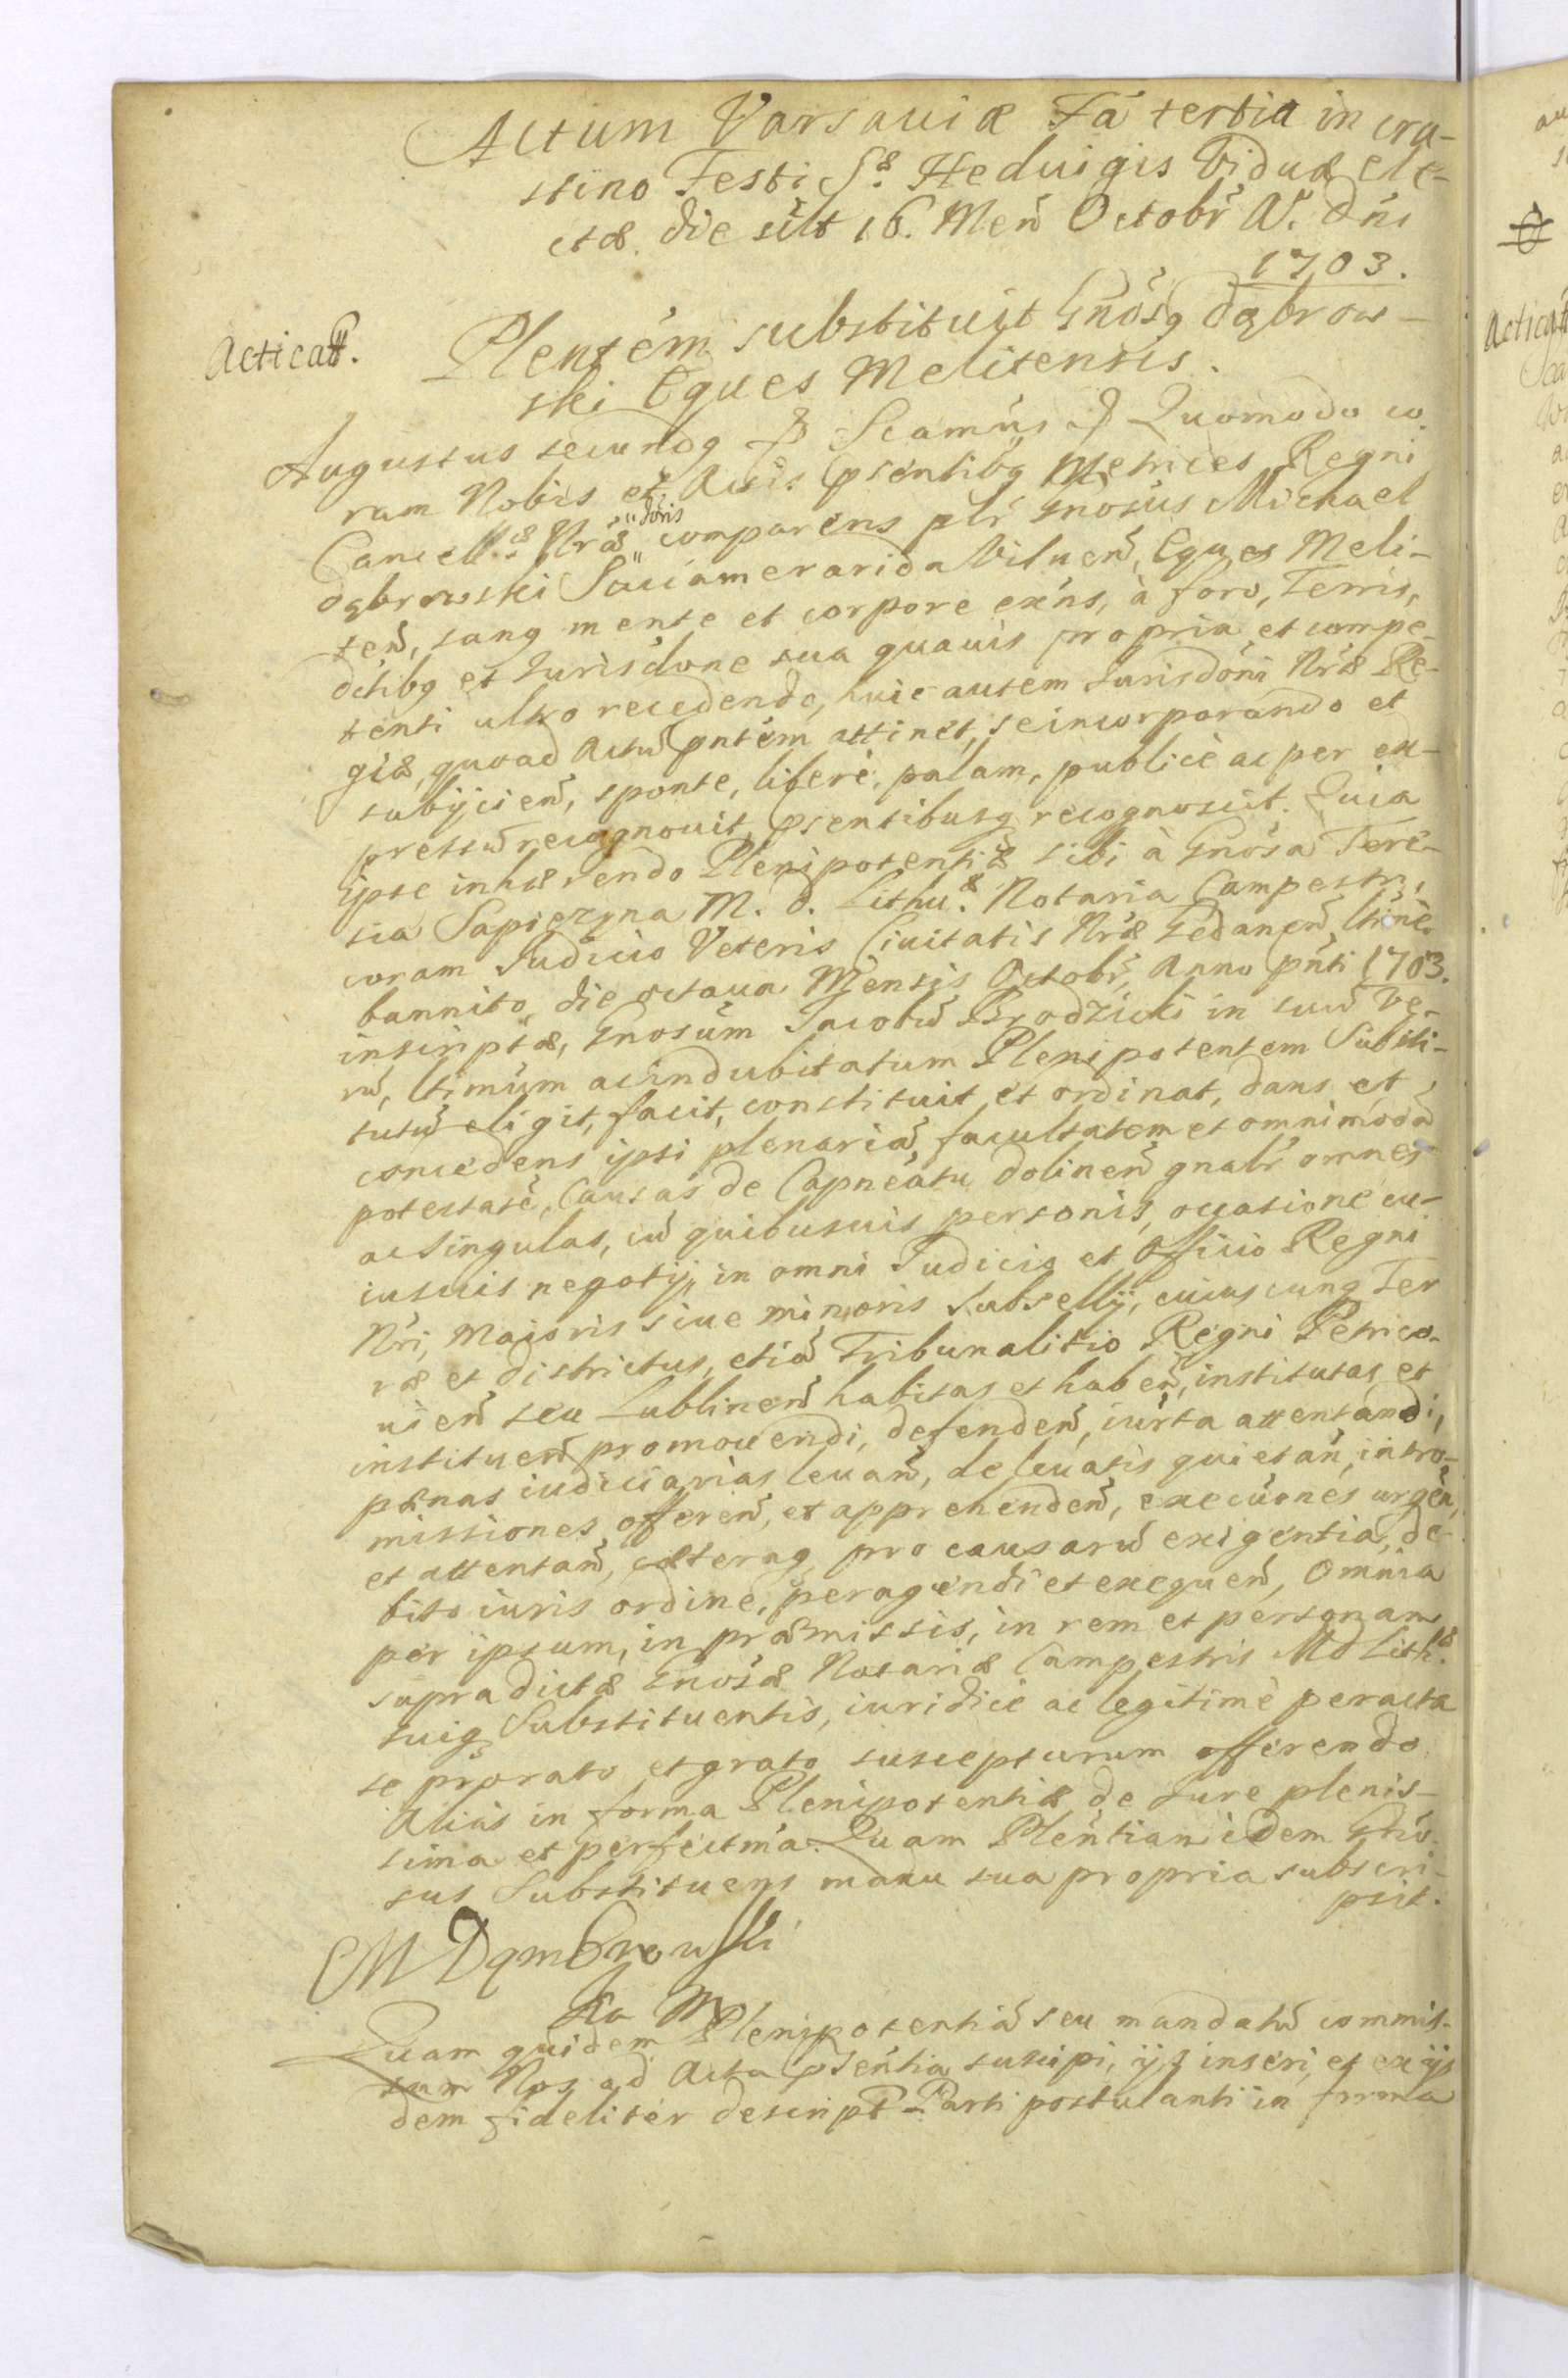 Actum Varsaviæ F̃a tertia in cra-
stino Festi S.æ Heduigis Viduæ ele-
ctæ. die silt 16. Men̄ Octobr̄ A.̄ Dn̄i
1703.
Acticatt.
Plentem̄ substituit Gn̄osq Dąbrow-
ski Eques Melitensis.
Augustus secundq Scamus Quomodo co-
ram Nobis et Actis psentibq Metrices Regni
Cancell.æ Nr̄æ "doris" comparens plr̄ Gnosus Michael
Dąbrowski Succamerarida Vilnen̄, Eques Meli-
ten̄, sanq mente et corpore exn̄s, à foro, Terris,
dctibq et Jurisdone sua quauis propria et compe-
tenti ultro recedendo, huic autem Jurisdoni Nr̄æ Re-
giæ, quoad Actū pntem̄ attinet, se incorporando et
subijcien̄, sponte, liberè, palam, publicè ac per ex-
pressū recognouit, psentibusq recognoscit. Quia
ipse inhærendo Plenipotentiæ sibi à Gnosa Tere-
sia Sapiezyna M. D. Lithu.æ Notaria Campestri,
coram Judicio Veteris Ciuitatis Nr̄æ Gedanen̄, ltimè
bannito, die octaua Mensis Octobr̄, Anno pn̄ti 1703.
inscriptæ, Gnosum Jacobū Brodzicki in suū ve-
rū, ltimum ac indubitatum Plenipotentem Substi-
tutū eligit, facit, constituit et ordinat, dans et
concedens ipsi plenariā, facultatem et omnimodā
potestatē, Causas de Capneatu Dolinen̄ gnalr̄ omnes
ac singulas, cū quibusuis personis, occasione cu-
iusuis negotij, in omni Judicio et Officio Regni
Nr̄i, Maioris siue minoris Subsellij, cuiuscunq Ter
ræ et districtus, etiā Tribunalitio Regni Petrico-
uien̄ seu Lublinen̄ habitas et haben̄, institutas et
instituen̄ promouendi, defenden̄, iurta attentandi,
pænas iudiciarias leuan̄, de leuatis quietan̄, intro-
missiones offeren̄, et apprehenden̄, execuones urgen̄,
et attentan̄, cæteraq pro causarū exigentia, de-
bito iuris ordine, peragendi et exequen̄, Omnia
per ipsum, in præmissis, in rem et personam
supradictæ Gnosæ Notariæ Campestris M D Lith.æ
suiq Substituentis, iuridicè ac legitimè peracta
se pro rato et grato suscepturum offerendo.
Aliàs in forma Plenipotentiæ de Jure plenis-
sima et perfectma. Quam Plen̄tiam idem Gn̄o-
sus Substituens manu sua propria subscri-
psit.
M Dąmbrowski
Ka M
Quam quidem Plenipotentiā seu mandatū commis-
sum Nos ad Acta psentia suscipi, ijsq inseri, et ex ijs
dem fideliter descript Parti postulanti in forma